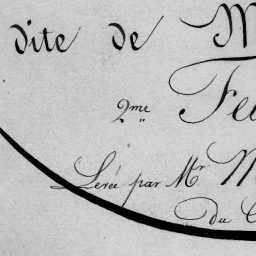 dite de M
2me Feu
Levée par Mr M
du C